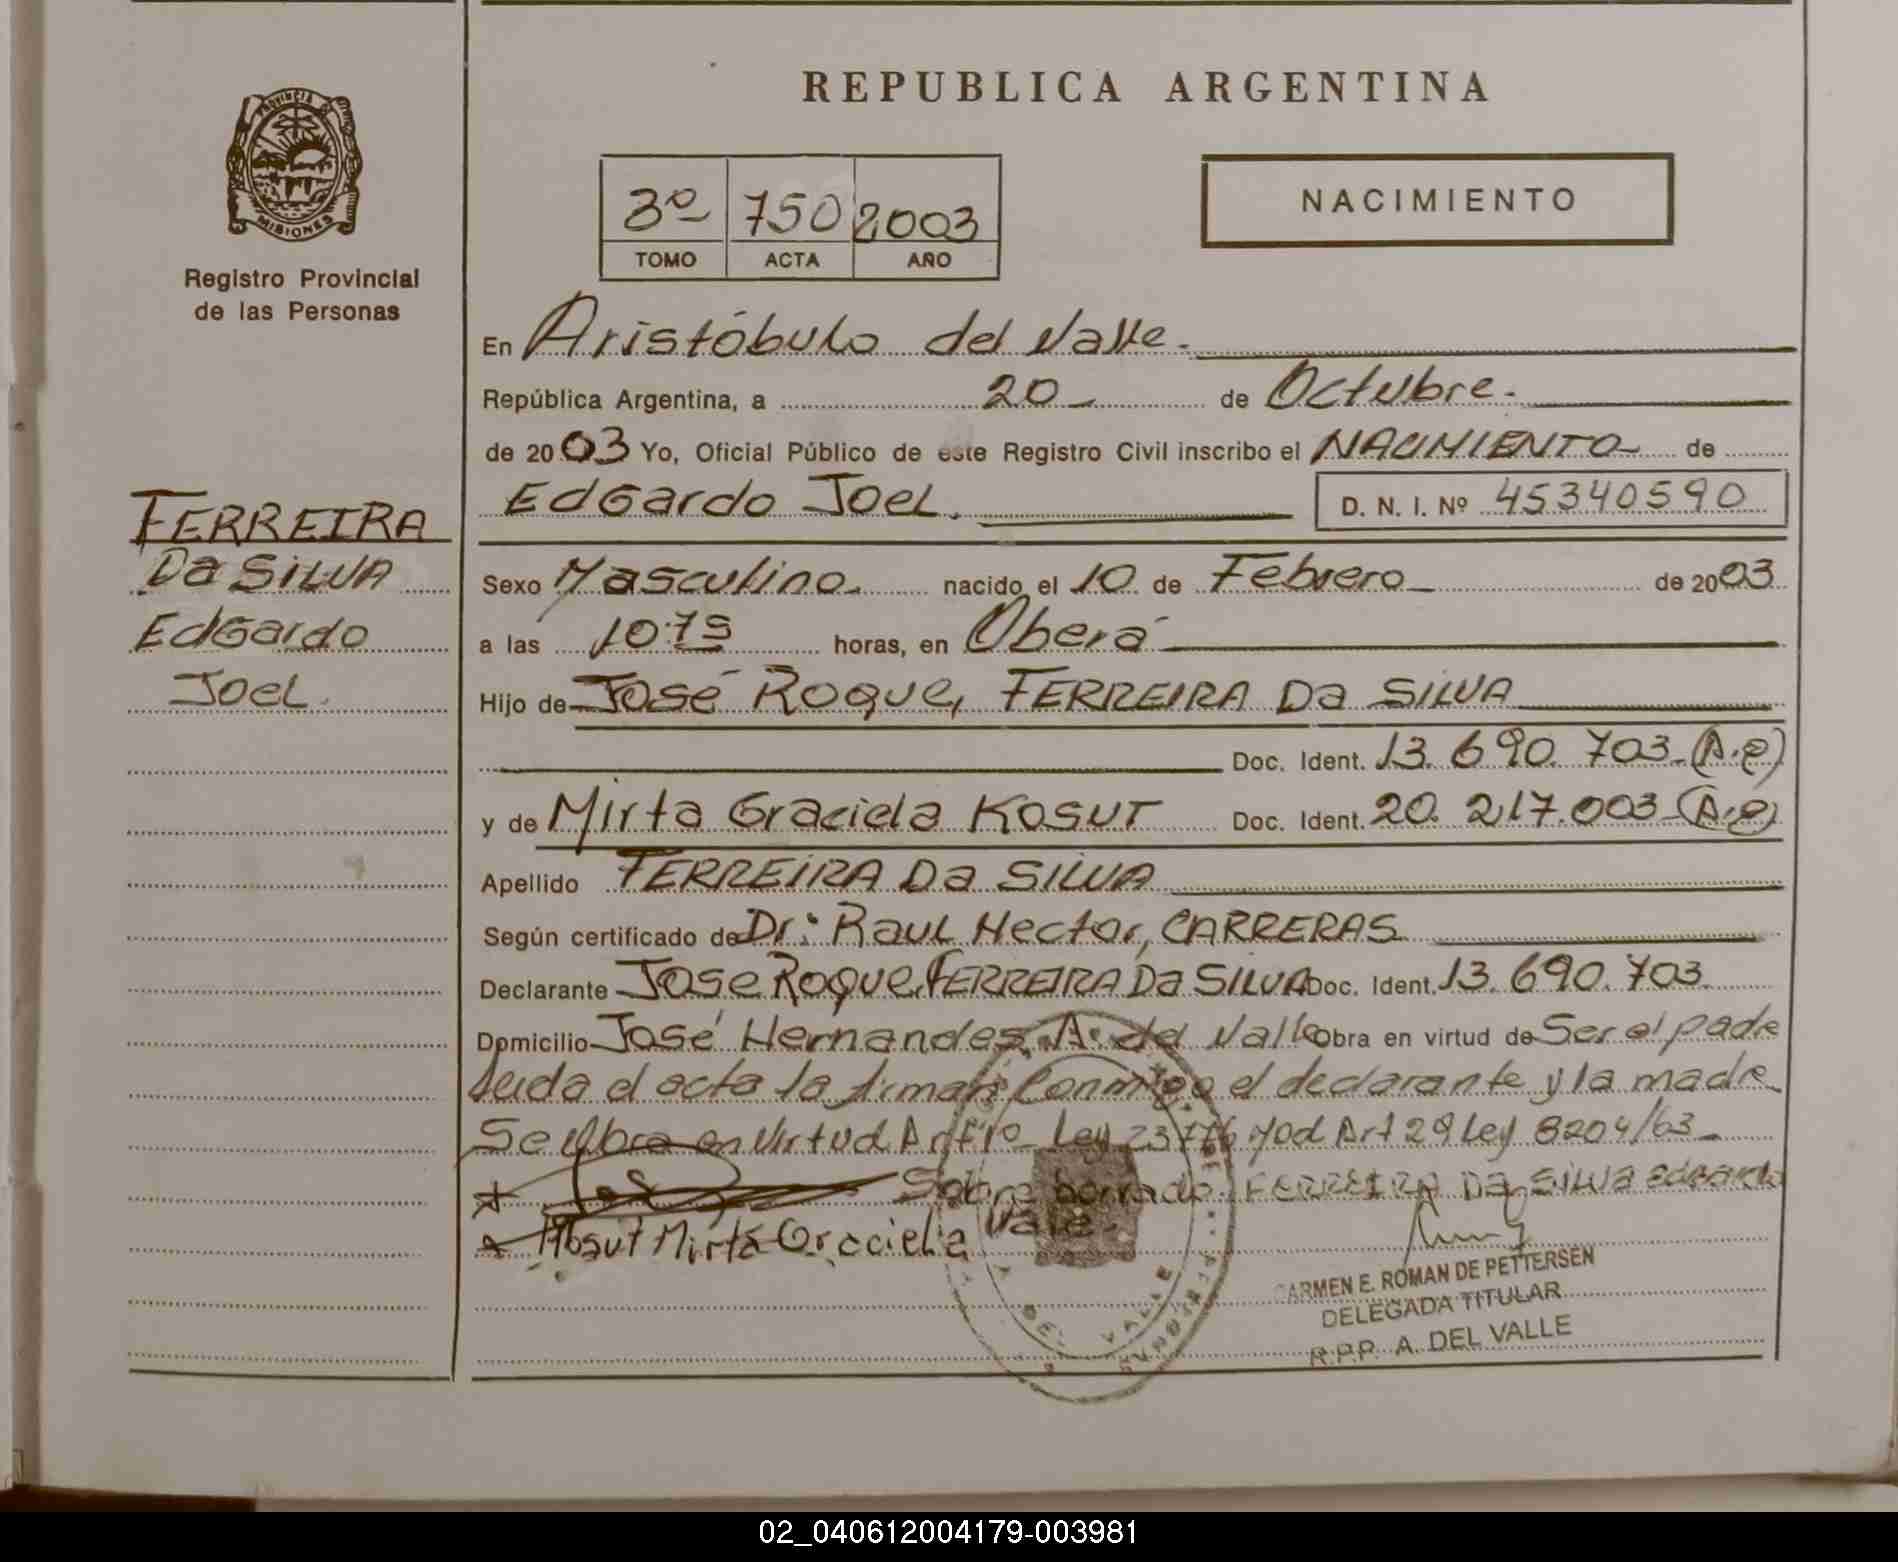 REPUBLICA ARGENTINA
PROVINCIA DE
MISIONES
Registro Provincial
de las Personas
3º 750 2003
TOMO ACTA AÑO
NACIMIENTO
En Aristóbulo del Valle.
República Argentina, a 20 de Octubre.
de 2003 Yo, Oficial Público de este Registro Civil inscribo el NACIMIENTO de
Edgardo Joel. D. N. I. Nº 45340590
FERREIRA
Da SILVA
Edgardo
Joel.
Sexo Masculino nacido el 10 de Febrero de 2003
a las horas, en Oberá
Hijo de José Roque, FERREIRA Da SILVA
Doc. Ident. 13.690.703
y de Mirta Graciela KOSUT Doc. Ident. 20.217.003
Apellido FERREIRA Da SILVA
Según certificado de Dr: Raul Hector, CARRERAS
Declarante Jose Roque, FERREIRA Da SILVA Doc. Ident. 13.690.703.
Domicilio José Hernandes A. del Valle Obra en virtud de Ser el padre
leida el acta la firman Conmigo el declarante y la madre
Se en Virtud Ley Art 29 Ley 8204/63
Sobre borrado. FERREIRA Da SILVA Edgardo
Kosut Mirta Graciela Vale.
DEL VALLE
MISIONES
CARMEN E. ROMAN DE PETTERSEN
DELEGADA TITULAR
R.P.P. A. DEL VALLE
02_040612004179-003981